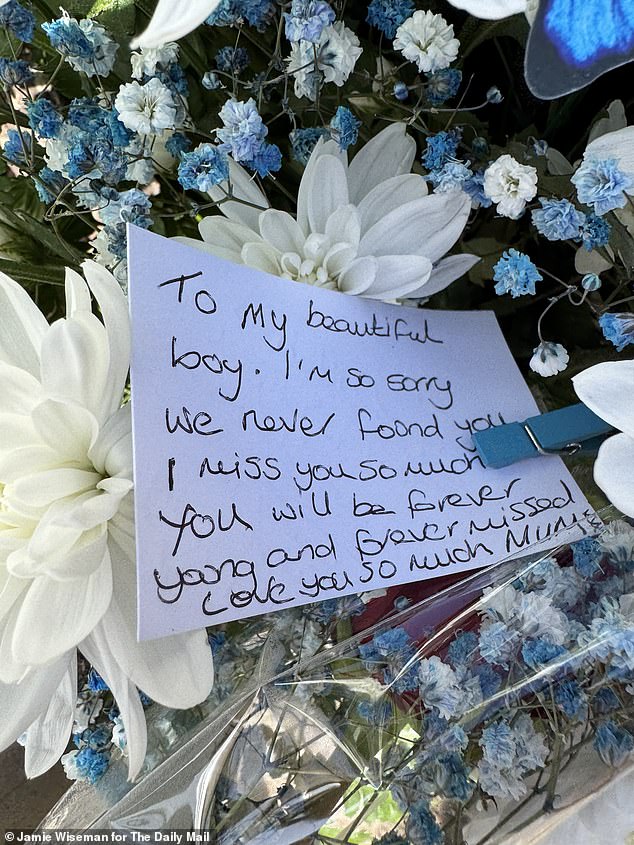 To My beautiful
boy. I'm so sorry
we never found you
I miss you so much
You will be forever
young and forever missed
Love you so much Mum
© Jamie Wiseman for The Daily Mail